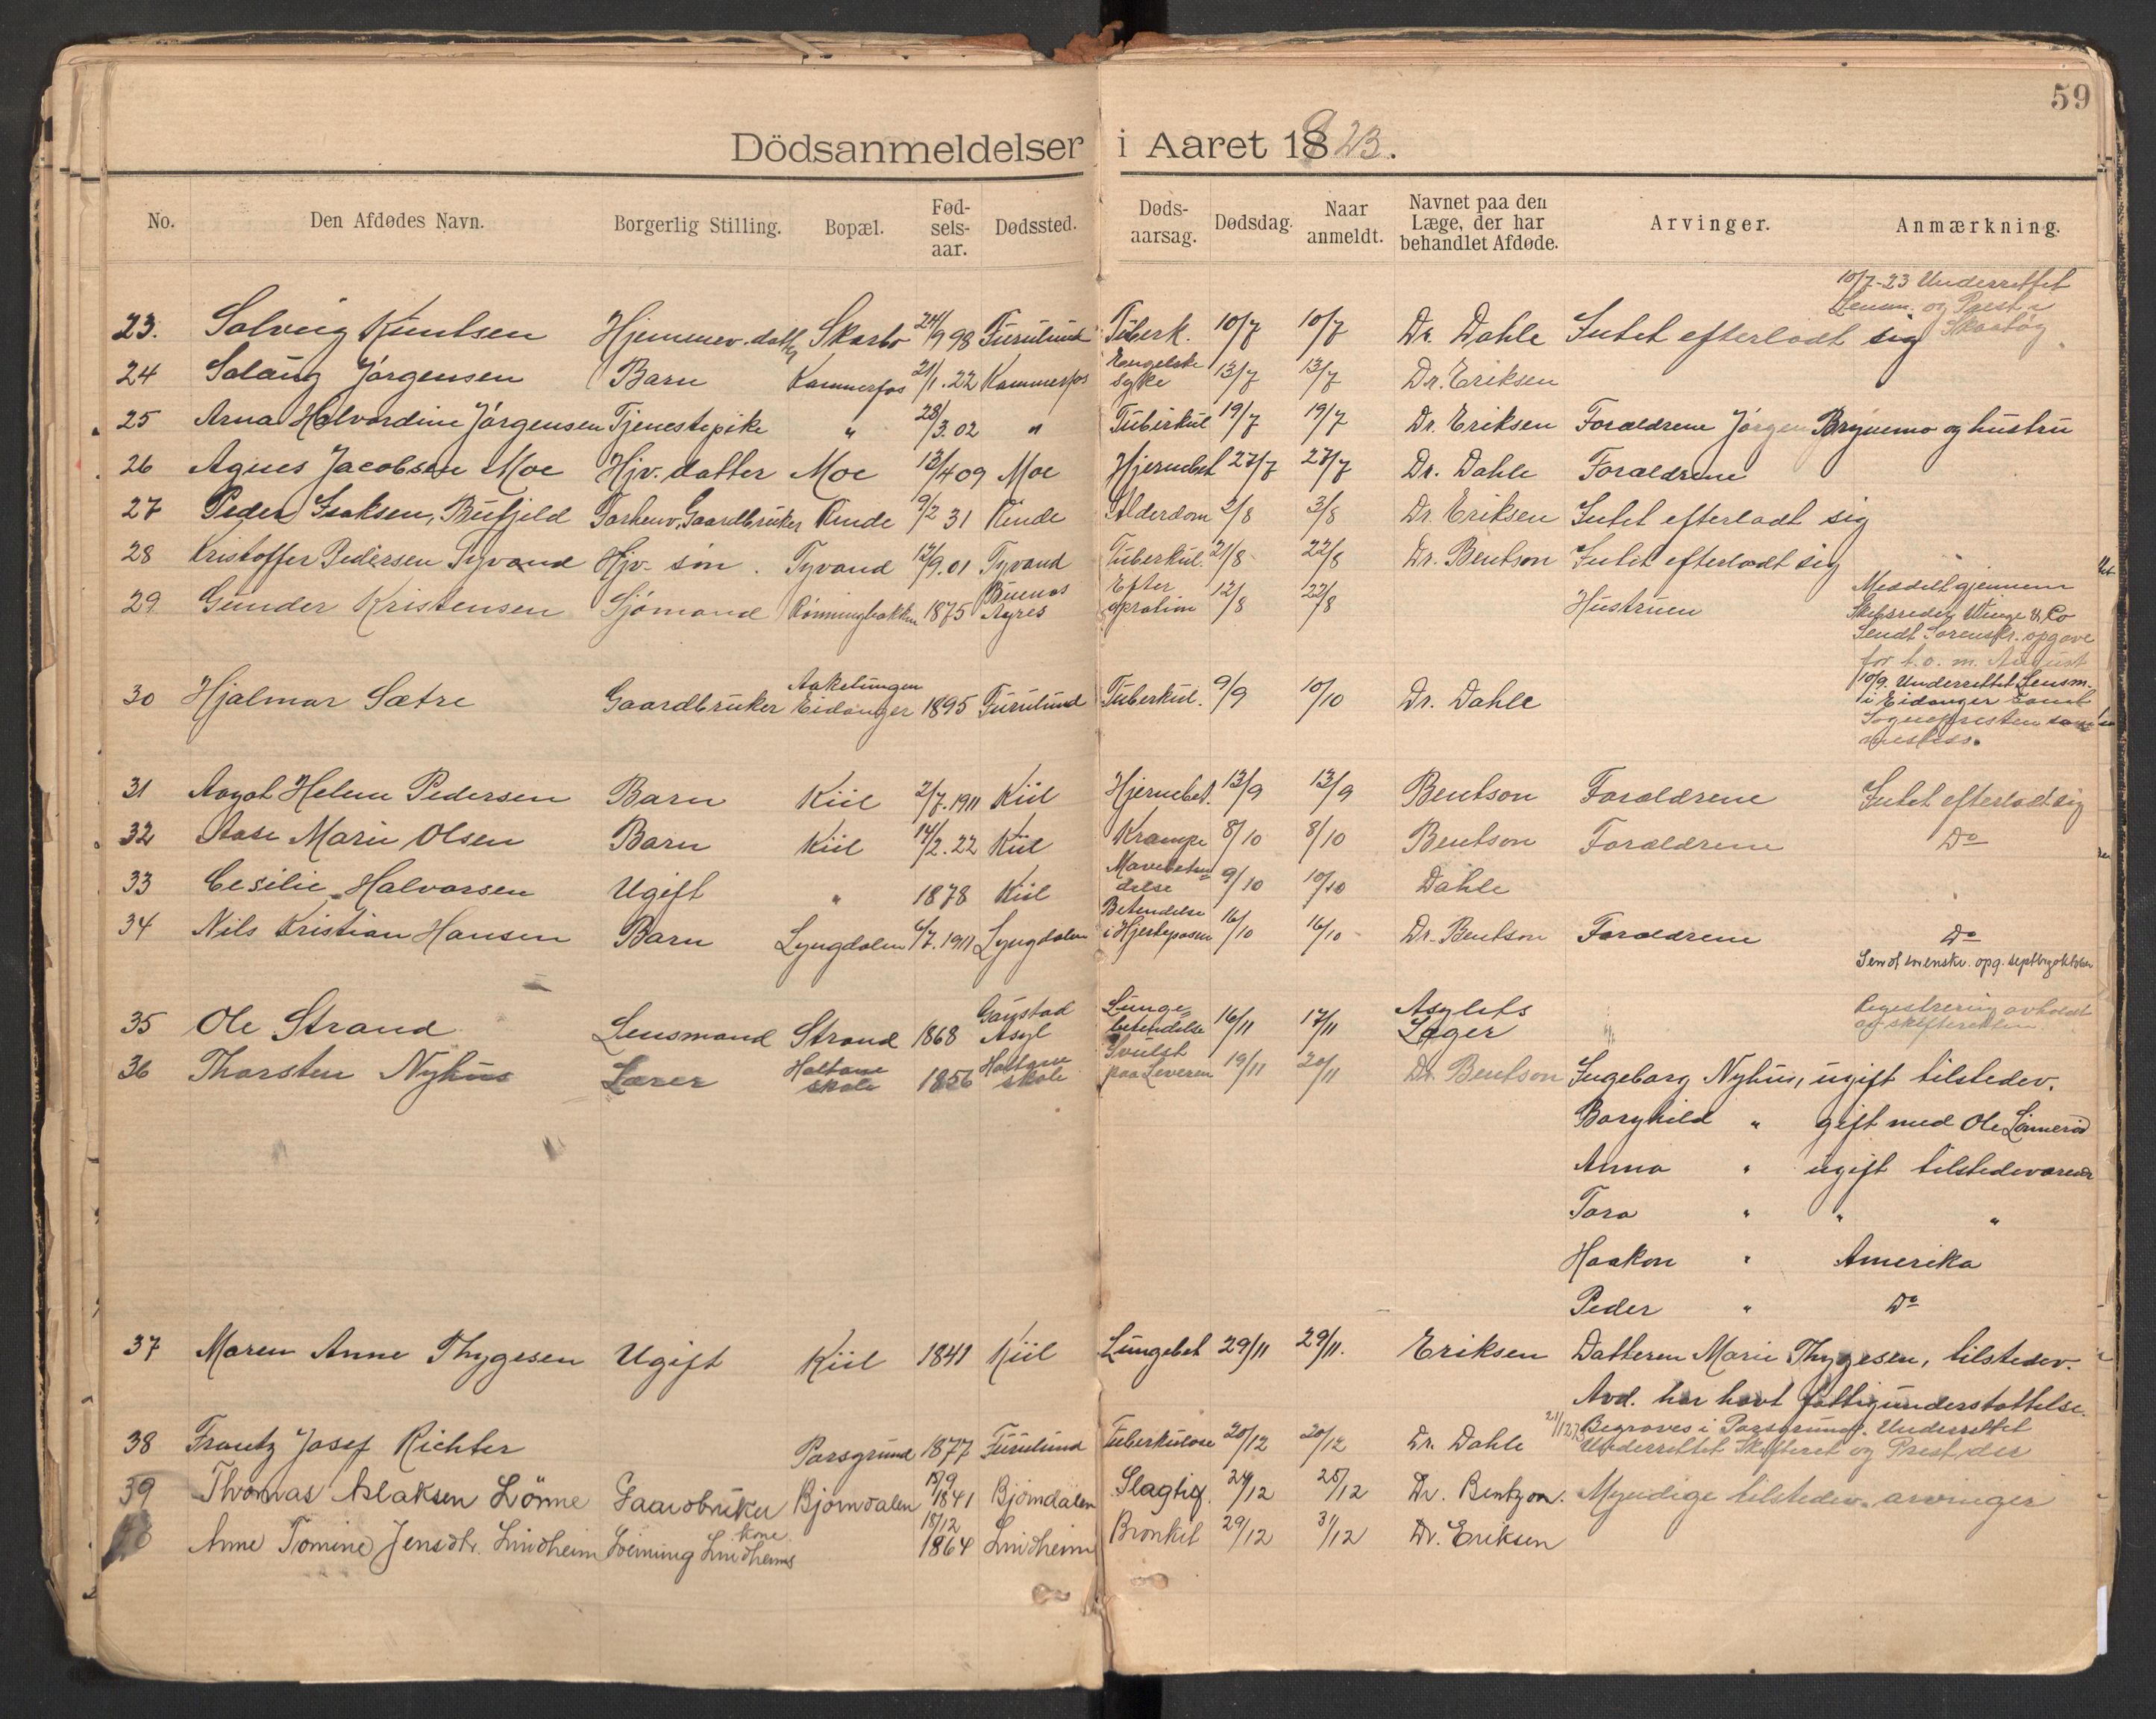 59
Dödsanmeldelser i Aaret 1923.
No. Den Afdødes Navn. Borgerlig Stilling. Bopæl. Fød-sels-aar. Dødssted. Døds-aarsag. Dødsdag. Naar anmeldt. Navnet paa den Læge, der har behandlet Afdøde. Arvinger. Anmærkning.
10/7-23 Underrettet
Lensm. og Prest i
23. Solveig Knutsen Hjemmev. datter Skarbo 24/9 98 Furulund Tuberk. 10/7 10/7 Dr. Dahle Intet efterladt sig
24 Solaug Jörgensen Barn Kammerfos 21/1.22 Kammerfos Engelske syke 13/7 13/7 Dr. Eriksen
25 Arna Halvordine Jörgensen Tjenestepike " 28/3.02 " Tuberkul 19/7 19/7 Dr. Eriksen Forældrene Jörgen Brynemo og hustru
26 Agnes Jacobsen Moe Hjv. datter Moe 13/4 09 Moe Hjernebet 27/7 27/7 Dr. Dahle Forældrene
27 Peder Isaksen, Bufjeld Forhenv. Gaardbruker Rinde 9/2 31 Rinde Alderdom 2/8 3/8 Dr. Eriksen Intet efterladt sig
28 Kristoffer Pedersen Tyvand Hjv. sön. Tyvand 12/9.01 Tyvand Tuberkul. 21/8 22/8 Dr. Bentson Intet efterladt sig
29 Gunder Kristensen Sjömand Rönningbakken 1875 Buenos Ayres Efter opration 12/8 22/8 Hustruen Meddelt gjennem
Skibsreder Winge & Co
Sendt Sorenskr. opgave
for t.o.m. August
30 Hjalmar Sætre Gaardbruker Eidanger 1895 Furulund Tuberkul. 9/9 10/10 Dr. Dahle 10/9. Underrettet Lensm.
i Eidanger samt
Sognepresten
31 Aagot Helene Pedersen Barn Kiil 2/7.1911 Kiil Hjernebet. 13/9 13/9 Bentson Forældrene Intet efterladt sig
32 Aase Marie Olsen Barn Kiil 14/2.22 Kiil Krampe 8/10 8/10 Bentson Forældrene Do
33 Cesilie Halvorsen Ugift " 1878 Kiil Mavebetændelse 9/10 10/10 Dahle
34 Nils Kristian Hansen Barn Lyngdalen 6/7.1911 Lyngdalen Betendelse i Hjerteposen 16/10 16/10 Dr. Bentson Forældrene Do
Sendt sorenskr. opg. septbr og oktober
35 Ole Strand Lensmand Strand 1868 Gaustad Asyl Lunge-betendelse 16/11 17/11 Asylets Læger Registrering avholdt
av skifteretten
36 Thorsten Nyhus Lærer Holtane skole 1856 Holtane skole Svulst paa Leveren 19/11 20/11 Dr. Bentson Ingeborg Nyhus, ugift tilstedev.
Borghild " gift med Ole Lönneröd
Anna " ugift tilstedeværende
Tora " " "
Haakon " Amerika
Peder " Do
37 Maren Anne Thygesen Ugift Kiil 1841 Kiil Lungebet 29/11 29/11. Eriksen Datteren Marie Thygesen, tilstedev.
Avd. har havt fattigunderstøttelse.
38 Frantz Josef Richter Porsgrund 1877 Furulund Tuberkulose 20/12 20/12 Dr. Dahle 21/12 23 Begraves i Porsgrund. Underrettet
Underrettet Skifteret og Prest der
39 Thomas Aslaksen Lönne Gaardbruker Bjorndalen 18/9 1841 Bjorndalen Slagtilf. 24/12 28/12 Dr. Bentzon. Myndige tilstedev. arvinger
Anne Tomine Jensdtr. Lindheim Lindheims kone 18/12 1864 Lindheim Bronkit 29/12 31/12 Dr. Eriksen